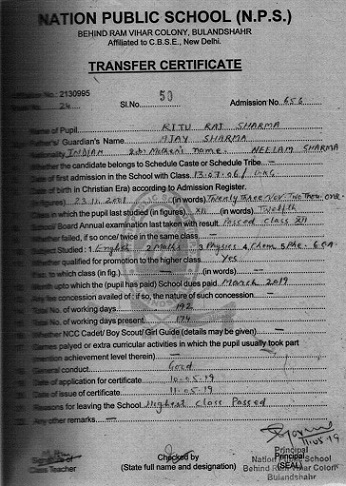 NATION PUBLIC SCHOOL (N.P.S.)
BEHIND RAM VIHAR COLONY, BULANDSHAHR
Affiliated to C.B.S.E., New Delhi.
TRANSFER CERTIFICATE
No. 2130995
Sl.No. 50 Admission No. 656
Name of Pupil RITU RAJ SHARMA
Father's/ Guardian's Name AJAY SHARMA
Nationality INDIAN Mother's name. NEELAM SHARMA
Whether the candidate belongs to Schedule Caste or Schedule Tribe —
Date of first admission in the School with Class. 13-07-06/ UKG
Date of birth in Christian Era) according to Admission Register.
(in figures) 23.11.2001 (in words) Twenty three Nov Two Thou. one.
Class in which the pupil last studied (in figures) XII (in words) Twelfth
School/ Board Annual examination last taken with result. Passed class XII
Whether failed, if so once/ twice in the same class —
Subject Studied : 1. English 2 Maths 3 Physics 4 Chem 5 Phe. 6
Whether qualified for promotion to the higher class Yes
If so, to which class (in fig.) — (in words) —
Month upto which the (pupil has paid) School dues paid March 2019
Any fee concession availed of : if so, the nature of such concession —
Total No. of working days 192
Total No. of working days present 174
Whether NCC Cadet/ Boy Scout/ Girl Guide (details may be given) —
Games palyed or extra curricular activities in which the pupil usually took part
(mention achievement level therein) —
General conduct Good
Date of application for certificate 10-05-19
Date of issue of certificate 11-05-19
Reasons for leaving the School Highest class Passed
Any other remarks —
11-05-19
Class Teacher
Checked by
(State full name and designation)
Principal
(SEAL)
Principal
Nation Public School
Behind Ram Vihar Colony
Bulandshahr